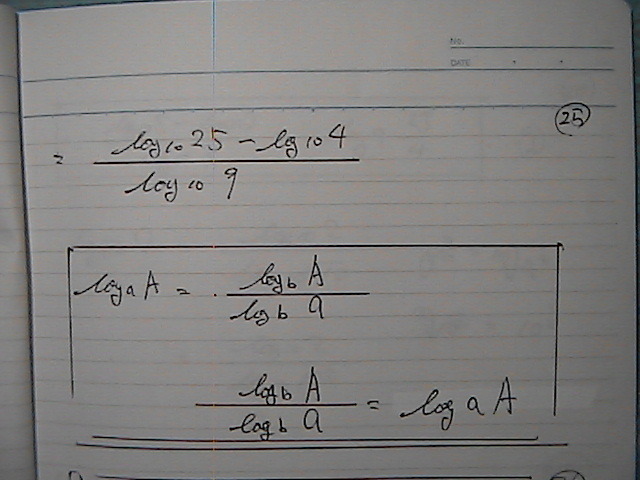 No.
DATE
25
= log10 25 - log10 4 / log10 9
loga A = logb A / logb a
logb A / logb a = log a A